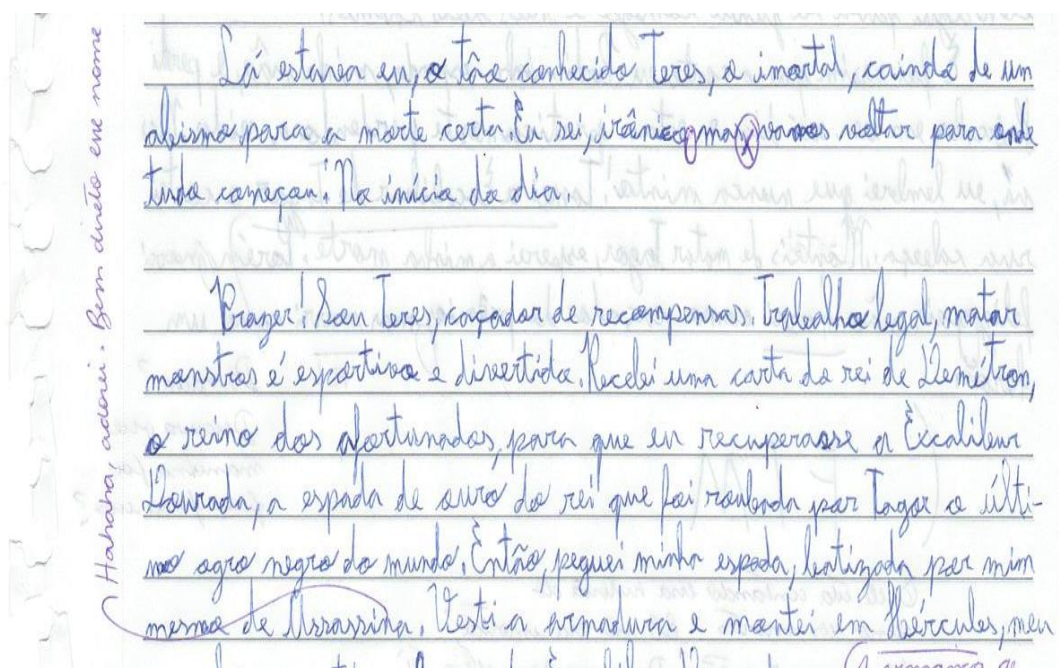 Lá estava eu, o tão conhecido Teres, o imortal, caindo de um
abismo para a morte certa. Eu sei, irônico, mas vamos voltar para onde
tudo começou: No início do dia.
Prazer! Sou Teres, caçador de recompensas. Trabalho legal, matar
monstros é esportivo e divertido. Recebi uma carta do rei de Demétron,
o reino dos afortunados, para que eu recuperasse a Excalibur
Dourada, a espada de ouro do rei que foi roubada por Tagor o últi-
mo ogro negro do mundo. Então, peguei minha espada, batizada por mim
mesmo de Assassina. Vesti a armadura e montei em Hércules, meu
Hahaha, adorei. Bem direto esse nome